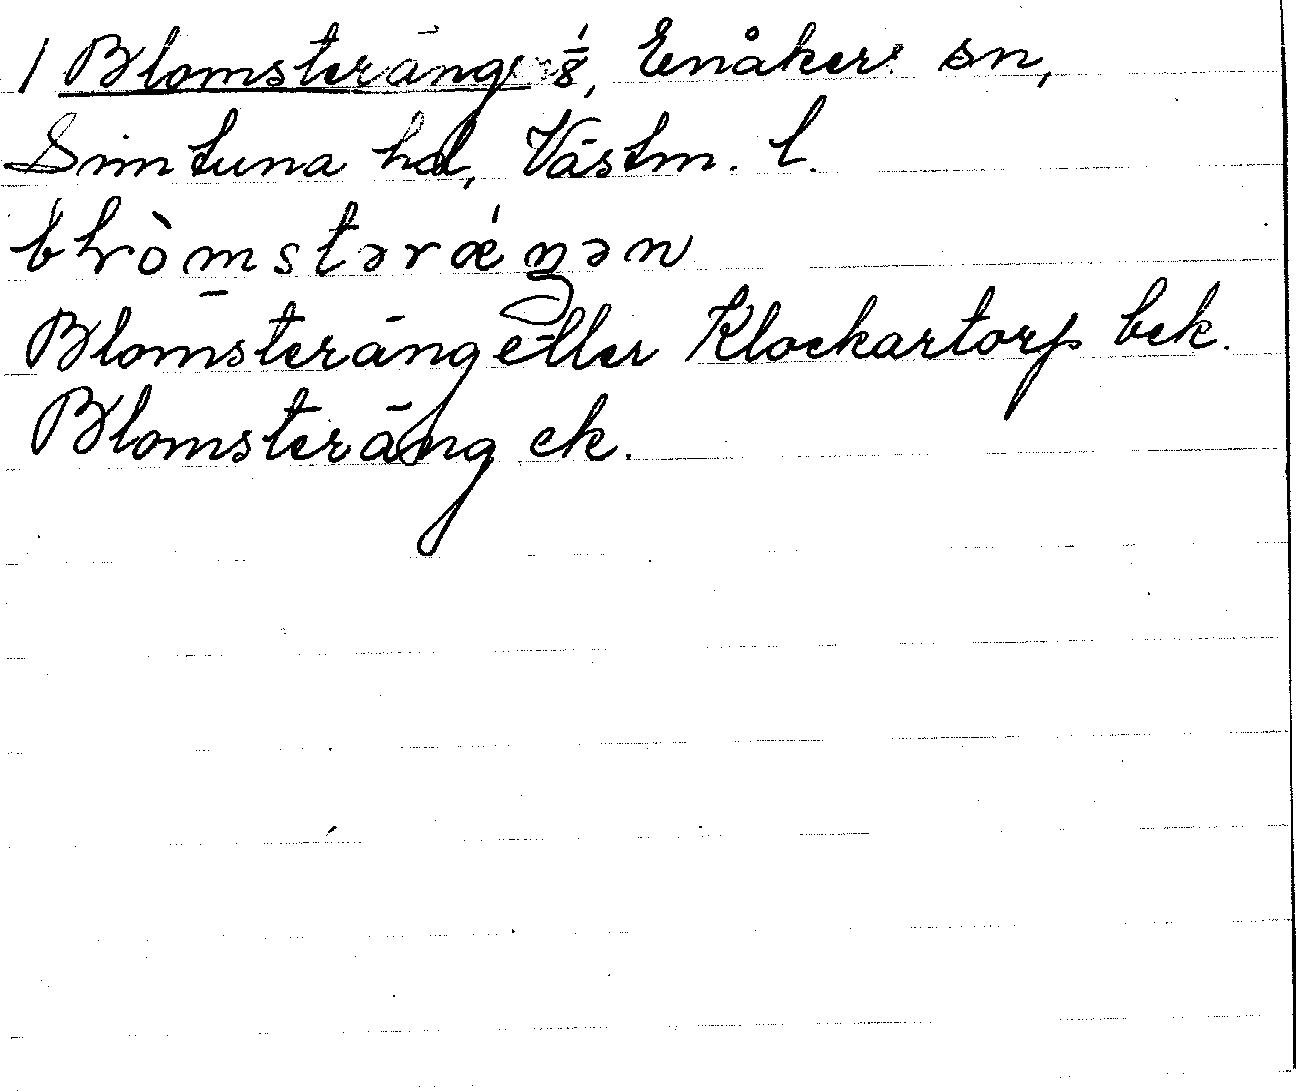 1 Blomsteräng 1/8, Enåkers sn,
Simtuna hd, Västm. l.
bɽòmstərǽŋən
Blomsteräng eller Klockartorp bek.
Blomsteräng ek.